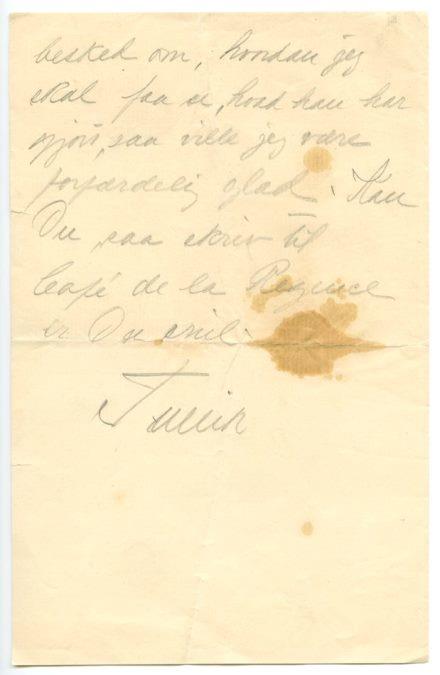 besked om, hvordan jeg
skal faa se, hvad han har
gjort, saa vilde jeg være
forfærdelig glad. Kan
Du, saa skriv til
Café de la Regence
er Du snil.
Tullik